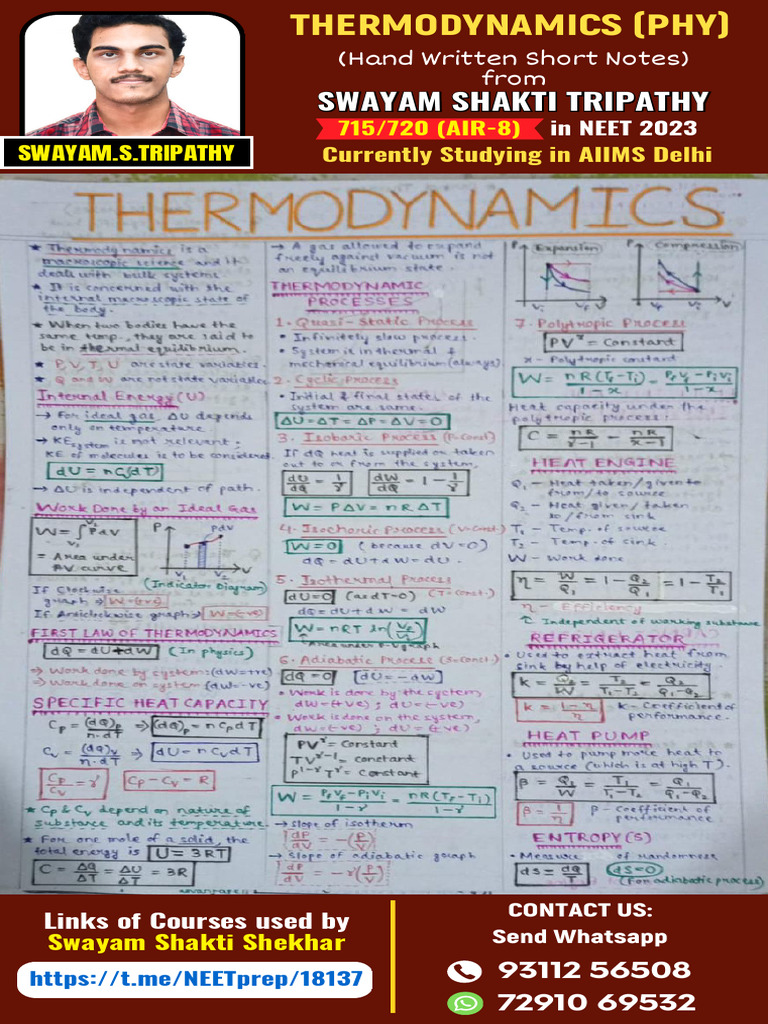 THERMODYNAMICS (PHY)
(Hand Written Short Notes)
from
SWAYAM SHAKTI TRIPATHY
715/720 (AIR-8) in NEET 2023
Currently Studying in AIIMS Delhi
SWAYAM.S.TRIPATHY
THERMODYNAMICS
★ Thermodynamics is a
macroscopic science and it
deals with bulk systems
★ It is concerned with the
internal macroscopic state of
the body.
★ When two bodies have the
same temp., they are said to
be in thermal equilibrium.
★ P, V, T, U are state variables.
★ Q and W are not state variables
Internal Energy (U)
→ For ideal gas, ΔU depends
only on temperature
→ KE system is not relevant;
KE of molecules is to be considered.
dU = nCv(dT)
→ ΔU is independent of path.
Work Done by an Ideal Gas
W = ∫ PdV
= Area under
PV curve
P
PdV
V₁ V₂ V
(Indicator Diagram)
If Clockwise
graph → W = (+ve)
If Anticlockwise graph → W = (-ve)
FIRST LAW OF THERMODYNAMICS
dQ = dU + dW (In physics)
⇒ Work done by system: (dW=+ve)
⇒ Work done on system (dW=-ve)
SPECIFIC HEAT CAPACITY
Cp = (dQ)p / n.dT ⇒ (dQ)p = nCp dT
Cv = (dQ)v / n.dT ⇒ dU = nCv dT
Cp/Cv = γ Cp - Cv = R
★ Cp & Cv depend on nature of
substance and its temperature.
★ For one mole of a solid, the
total energy is U = 3RT
C = ΔQ/ΔT = ΔU/ΔT = 3R
→ A gas allowed to expand
freely against vacuum is not
an equilibrium state.
THERMODYNAMIC
PROCESSES
1. Quasi-Static Process
• Infinitely slow process.
• System is in thermal &
mechanical equilibrium (always)
2. Cyclic Process
• Initial & final states of the
system are same.
ΔU = ΔT = ΔP = ΔV = 0
3. Isobaric Process (P=Const)
If dQ heat is supplied or taken
out to or from the system,
dU/dQ = 1/γ dW/dQ = 1 - 1/γ
W = PΔV = nRΔT
4. Isochoric Process (V=Const.)
W = 0 (because dV=0)
dQ = dU + dW = dU.
5. Isothermal Process
dU=0 (as dT=0) (T=Const.)
dQ = dU + dW = dW
W = nRT ln(V₂/V₁)
6. Adiabatic Process (S=Const.)
dQ = 0 dU = -dW
• Work is done by the system,
dW=(+ve) ; dU=(-ve)
• Work is done on the system,
dW=(-ve) ; dU=(+ve)
PV^γ = Constant
TV^γ-1 = constant
P^1-γ T^γ = Constant
W = PfVf - PiVi / 1-γ = nR(Tf - Ti) / 1-γ
→ Slope of isotherm
dP/dV = -(P/V)
→ Slope of adiabatic graph
dP/dV = -γ(P/V)
P Expansion
Vi Vf V
P Compression
Vf Vi V
7. Polytropic Process
PV^x = Constant
x - Polytropic constant
W = nR(Tf-Ti) / 1-x = PfVf-PiVi / 1-x
Heat capacity under the
polytropic process:
C = nR/γ-1 - nR/x-1
HEAT ENGINE
Q₁ - Heat taken/given to
from/to source
Q₂ - Heat given/taken
to/from sink
T₁ - Temp. of source
T₂ - Temp. of sink.
W - Work done
η = W/Q₁ = 1 - Q₂/Q₁ = 1 - T₂/T₁
η - Efficiency
Independent of working substance
REFRIGERATOR
• Used to extract heat from
sink by help of electricity
K = Q₂/W = T₂/T₁-T₂ = Q₂/Q₁-Q₂
K = 1-η/η K - Coefficient of
performance.
HEAT PUMP
• Used to pump more heat to
a source (which is at high T).
β = Q₁/W = T₁/T₁-T₂ = Q₁/Q₁-Q₂
β = 1/η β - Coefficient of
performance
ENTROPY (S)
• Measure of randomness
dS = dQ/T dS=0
(For adiabatic process)
Links of Courses used by
Swayam Shakti Shekhar
https://t.me/NEETprep/18137
CONTACT US:
Send Whatsapp
93112 56508
72910 69532